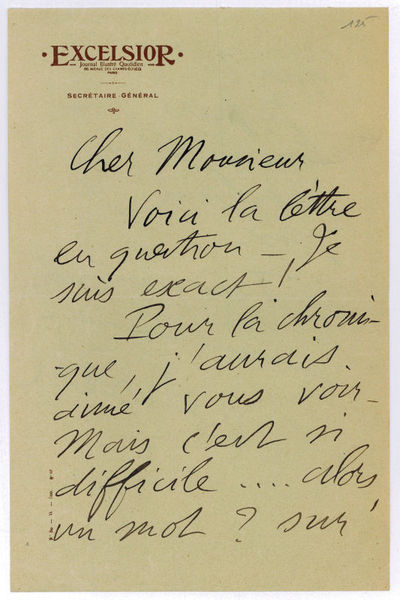 125
·EXCELSIOR·
Journal Illustré Quotidien
88, AVENUE DES CHAMPS-ÉLYSÉES
PARIS
SECRÉTAIRE GÉNÉRAL
Cher Monsieur
Voici la lettre
en question — Je
suis exact !
Pour la chroni-
-que, j'aurais
aimé vous voir-
Mais c'est si
difficile .... alors
un mot ? sur